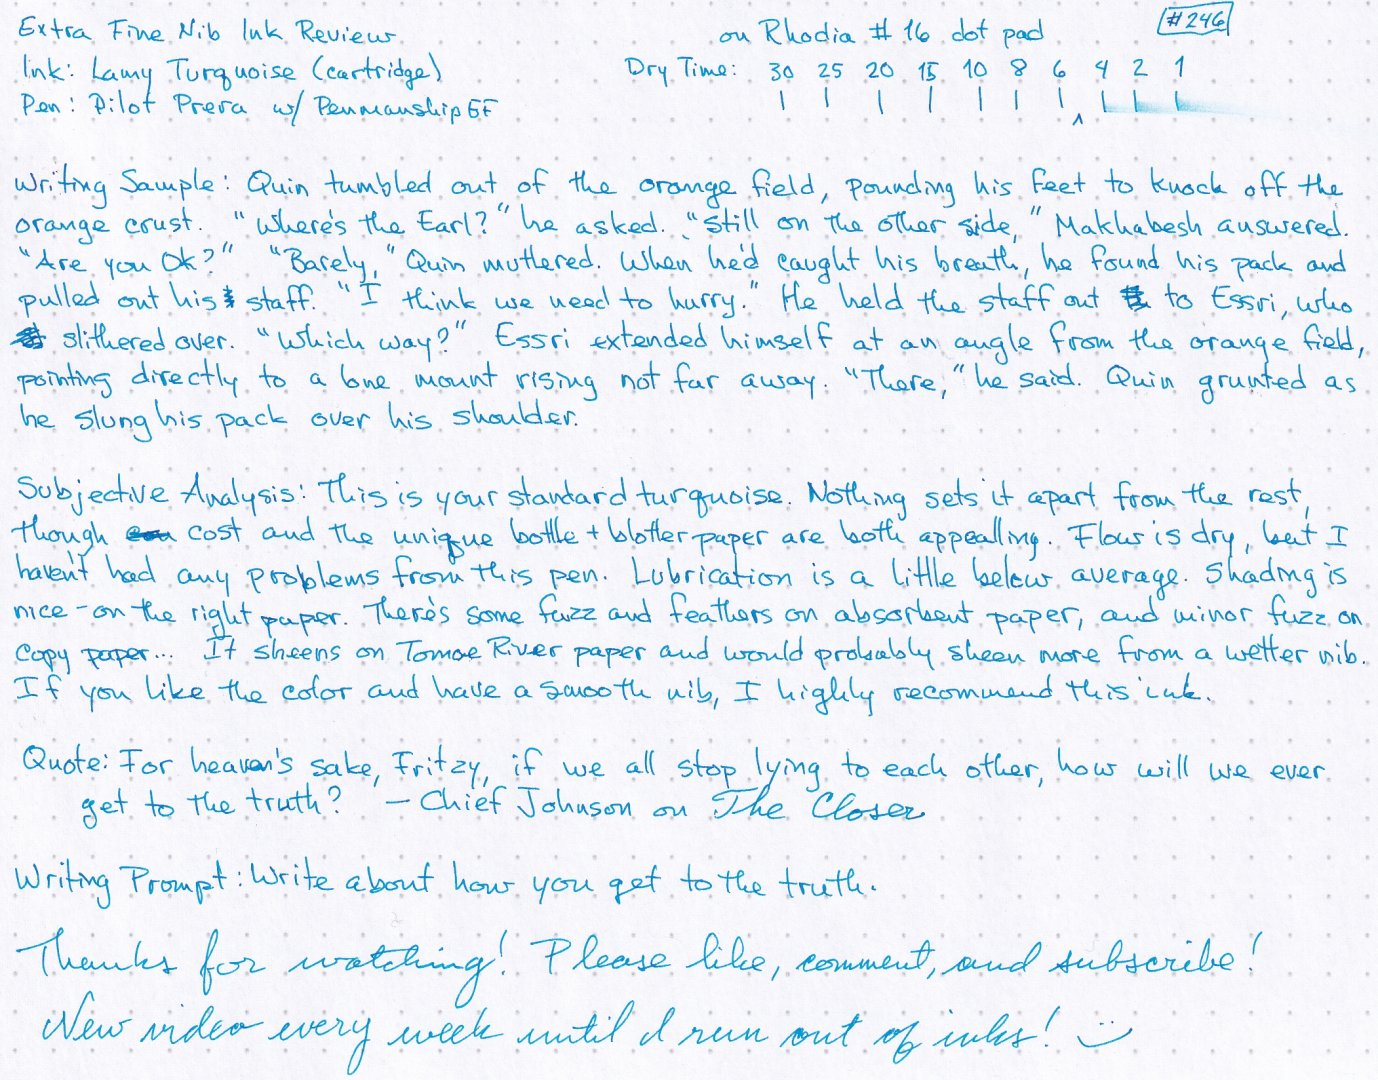 Extra Fine Nib Ink Review on Rhodia #16 dot pad #246
Ink: Lamy Turquoise (cartridge) Dry Time: 30 25 20 15 10 8 6 4 2 1
Pen: Pilot Prera w/ Penmanship EF
Writing Sample: Quin tumbled out of the orange field, pounding his feet to knock off the
orange crust. "Where's the Earl?" he asked. "Still on the other side," Makhabesh answered.
"Are you Ok?" "Barely," Quin muttered. When he'd caught his breath, he found his pack and
pulled out his staff. "I think we need to hurry." He held the staff out to Essri, who
slithered over. "Which way?" Essri extended himself at an angle from the orange field,
pointing directly to a lone mount rising not far away. "There," he said. Quin grunted as
he slung his pack over his shoulder.
Subjective Analysis: This is your standard turquoise. Nothing sets it apart from the rest,
though cost and the unique bottle + blotter paper are both appealling. Flow is dry, but I
haven't had any problems from this pen. Lubrication is a little below average. Shading is
nice - on the right paper. There's some fuzz and feathers on absorbent paper, and minor fuzz on
copy paper... It sheens on Tomoe River paper and would probably sheen more from a wetter nib.
If you like the color and have a smooth nib, I highly recommend this ink.
Quote: For heaven's sake, Fritzy, if we all stop lying to each other, how will we ever
get to the truth? - Chief Johnson on The Closer
Writing Prompt: Write about how you get to the truth.
Thanks for watching! Please like, comment, and subscribe!
New video every week until I run out of inks! :)